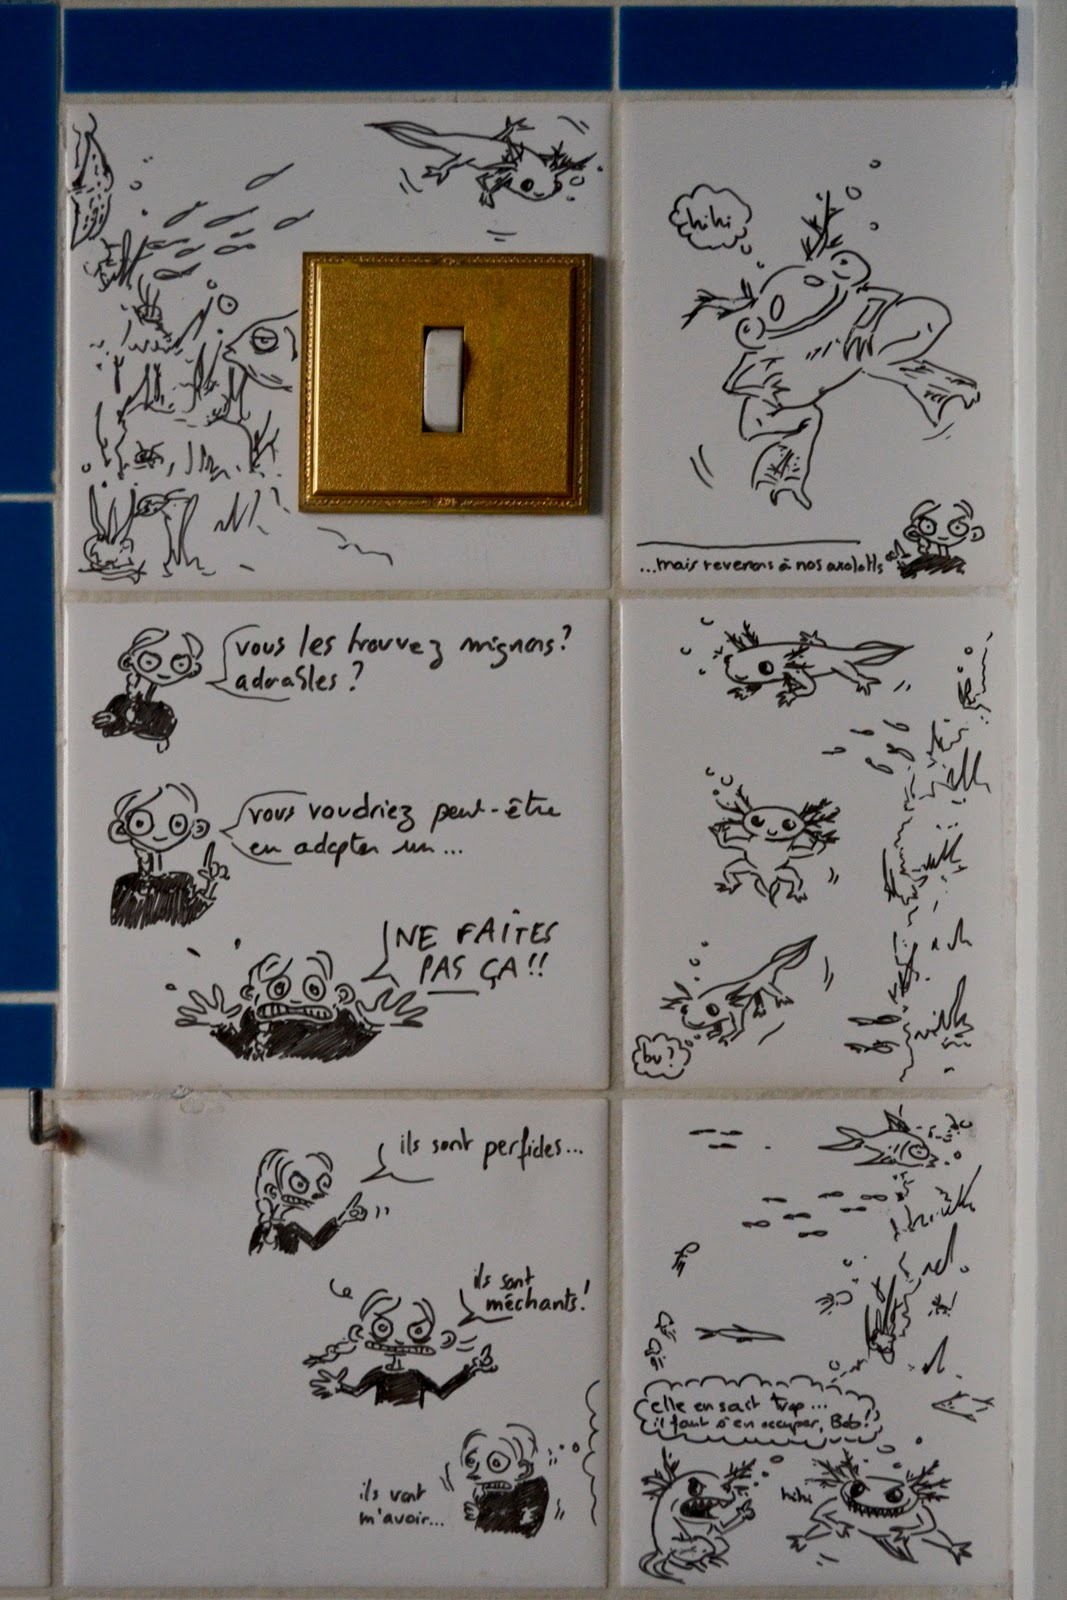 hihi
...mais revenons à nos axolotls
vous les trouvez mignons?
adorables?
vous voudriez peut-être
en adopter un...
NE FAÎTES
PAS ÇA!!
bu?
ils sont perfides...
ils sont
méchants!
ils vont
m'avoir...
elle en sait trop...
il faut s'en occuper, Bob!
hihi